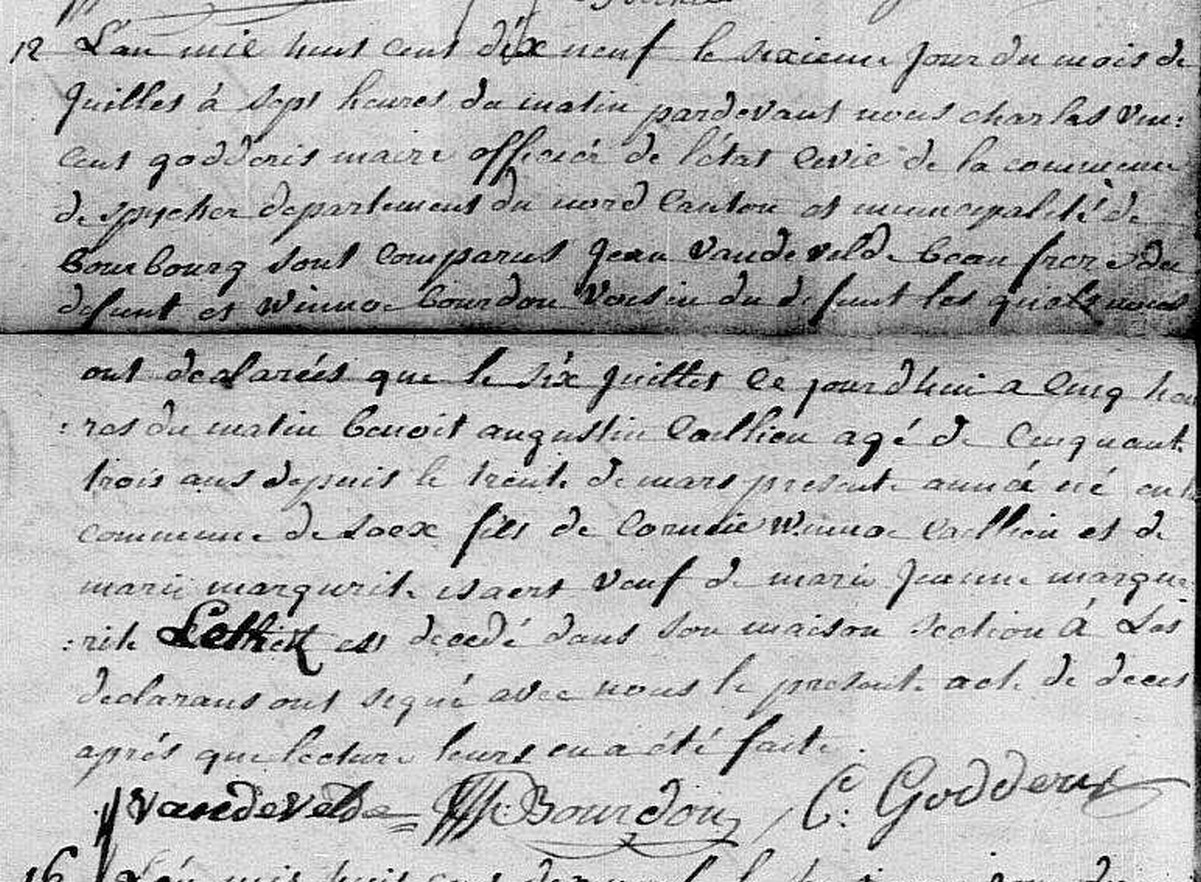 12 L'an mil huit cent dix neuf le sixieme jour du mois de
Juillet à sept heures du matin pardevant nous charles vin:
cent godderis maire officier de l'état civil de la commune
de spycker departement du nord Canton et municipalité de
Bourbourg sont comparus Jean Vandevelde beau frere du
defunt et Winnoc Bourdon Voisin du defunt les quels nous
ont declarées que le six Juillet ce jourdhui a cinq heu
:res du matin benoit augustin Caillieu agé de Cinquante
trois ans depuis le trente de mars presente année né en la
commune de Soex fils de Cornilie Winnoc Caillieu et de
marie margurite isaert Veuf de marie Jeanne margue
:rite Lethick est decedé dans son maison section A Les
declarans ont signé avec nous le present acte de deces
aprés que lecture leurs en a été faite.
Vandevelde W Bourdon C: Godderis
16 L'an mil huit cent